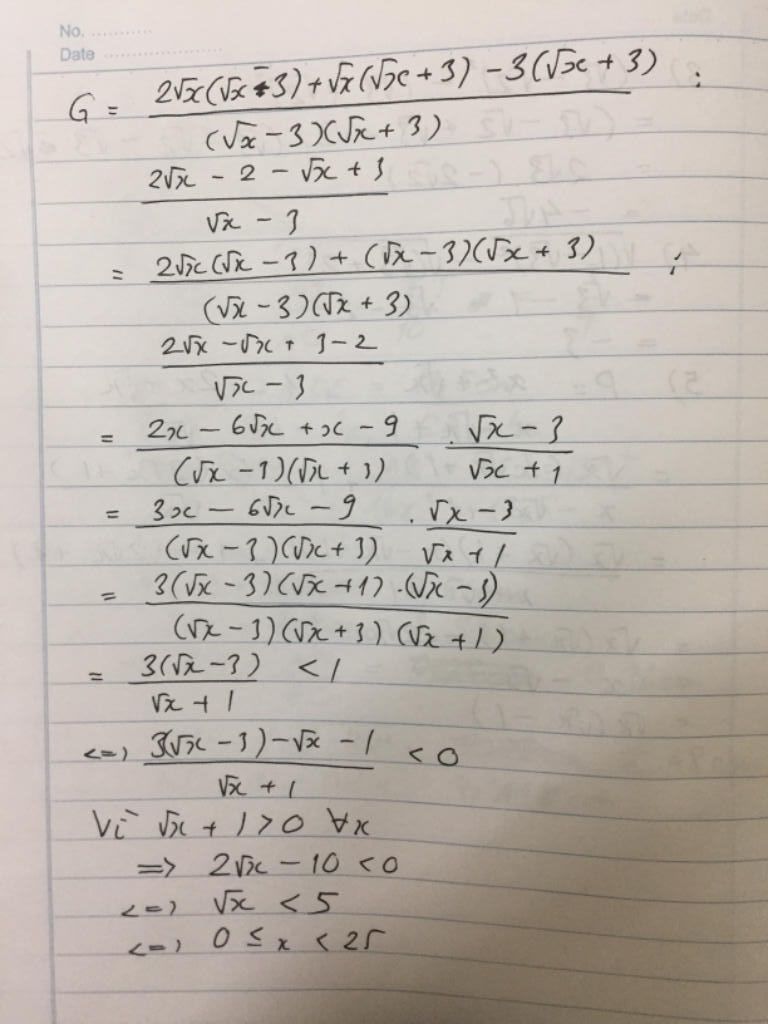 No. ............
Date ........................
G = (2√x(√x - 3) + √x(√x + 3) - 3(√x + 3)) / ((√x - 3)(√x + 3)) :
(2√x - 2 - √x + 3) / (√x - 3)
= (2√x(√x - 3) + (√x - 3)(√x + 3)) / ((√x - 3)(√x + 3)) :
(2√x - √x + 3 - 2) / (√x - 3)
= (2x - 6√x + x - 9) / ((√x - 3)(√x + 3)) . (√x - 3) / (√x + 1)
= (3x - 6√x - 9) / ((√x - 3)(√x + 3)) . (√x - 3) / (√x + 1)
= (3(√x - 3)(√x + 1) . (√x - 3)) / ((√x - 3)(√x + 3)(√x + 1))
= (3(√x - 3)) / (√x + 1) < 1
<=> (3(√x - 3) - √x - 1) / (√x + 1) < 0
Vì √x + 1 > 0 ∀x
=> 2√x - 10 < 0
<=> √x < 5
<=> 0 ≤ x < 25